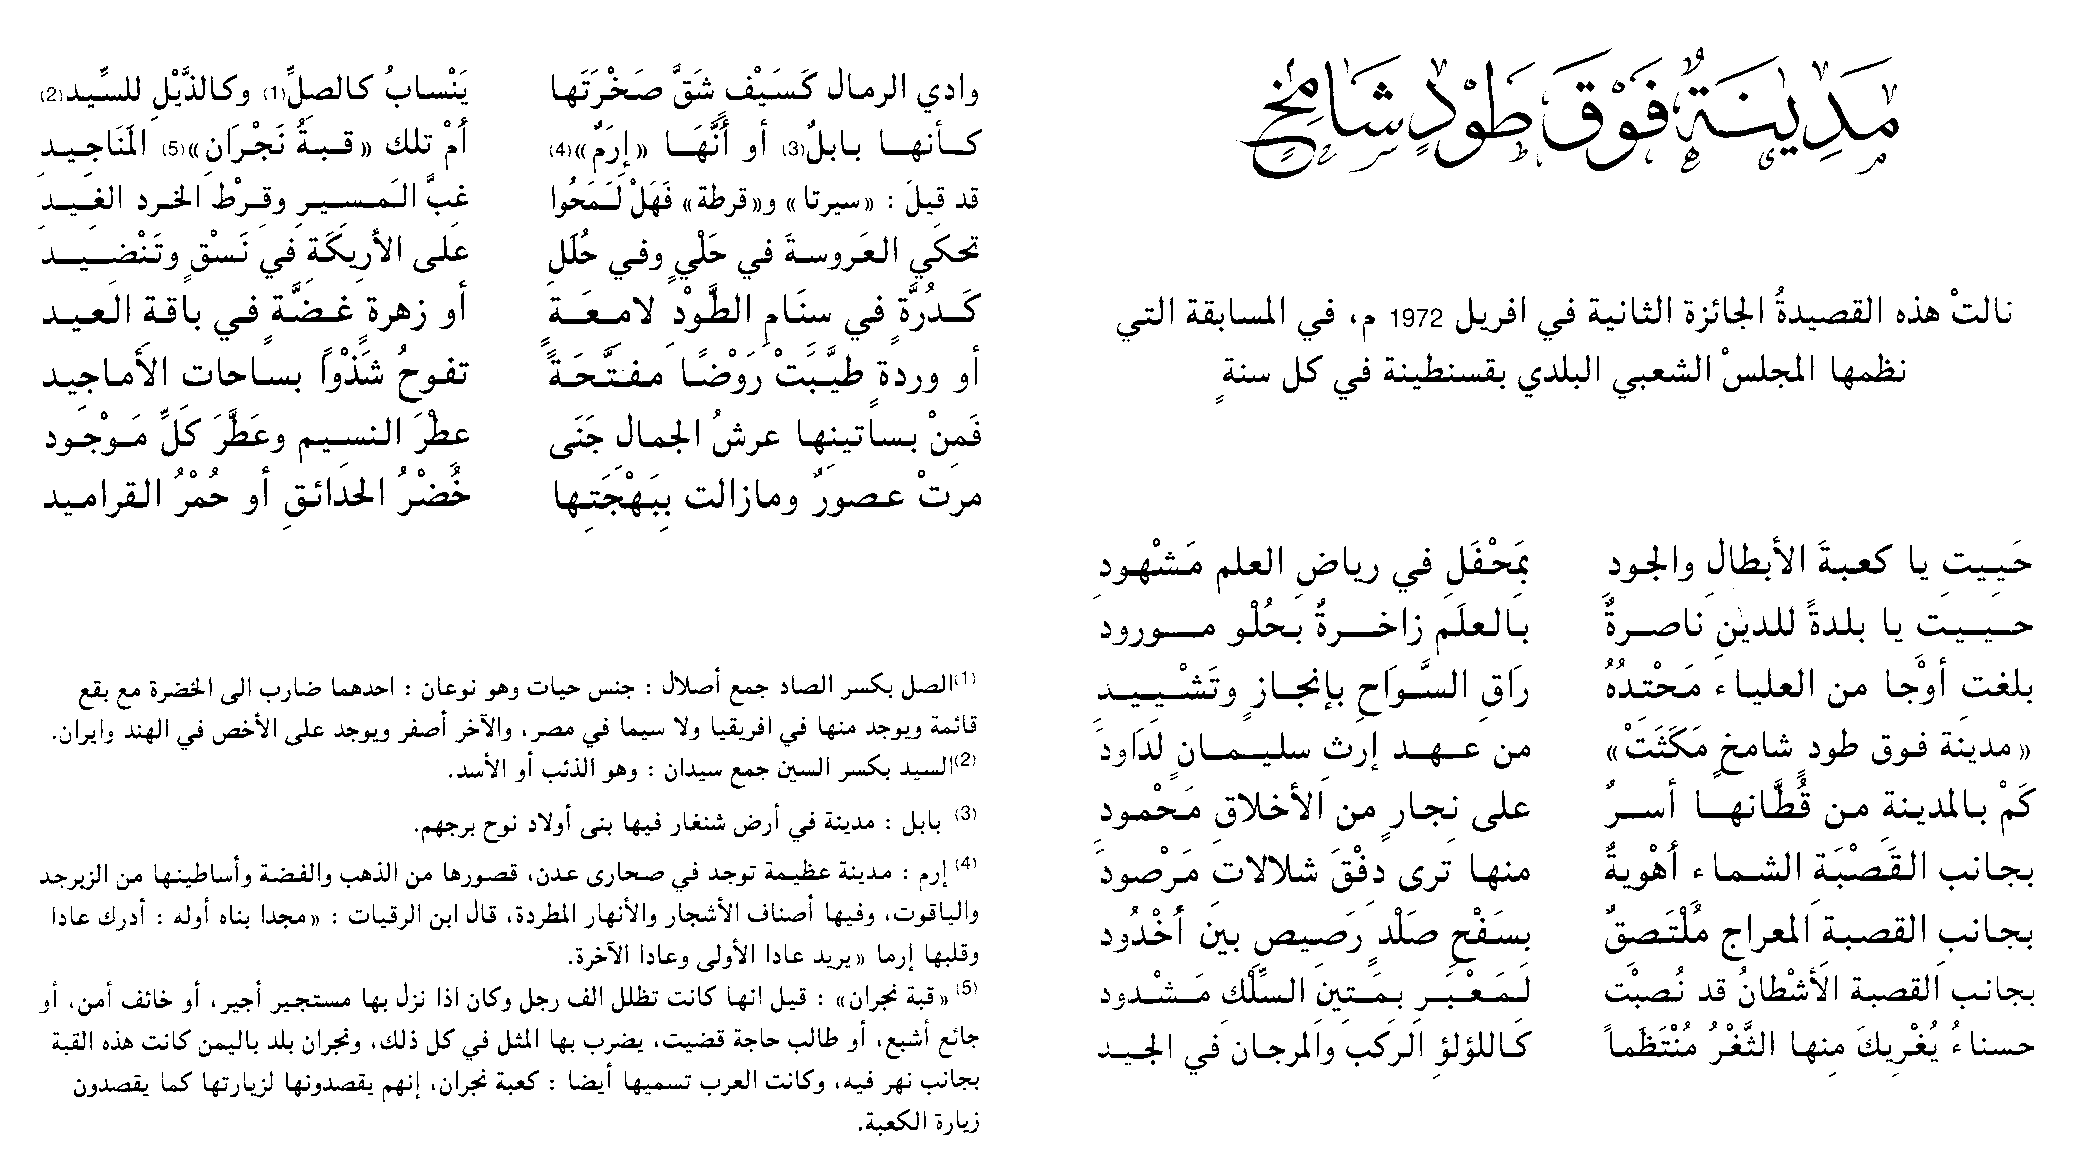 مَدِينَةٌ فَوْقَ طَوْدٍ شَامِخٍ
نالتْ هذه القصيدةُ الجائزة الثانية في افريل 1972 م، في المسابقة التي
نظمها المجلسْ الشعبي البلدي بقسنطينة في كل سنةٍ
حَيِيتِ يا كعبةَ الأبطالِ والجودِ بمَحْفَلِ في رياضِ العلم مَشْهودِ
حييتِ يا بلدةً للدينِ ناصرةٌ بالعلَم زاخرةٌ بحُلْو مورود
بلغتِ أوْجا من العلياء مَحْتدُهُ رَاقِ السَّوَاحِ بإنجازٍ وتَشْييد
«مدينة فوق طود شامخٍ مَكَثَتْ» من عهد إرثِ سليمانٍ لدَاودَ
كَمْ بالمدينة من قُطَّانِها أسرٌ على نِجارٍ من الأخلاقِ مَحْمودِ
بجانب القَصْبَةِ الشماء أهْويةٌ منها ترى دفْقَ شلالاتِ مَرْصودِ
بجانبِ القصبةِ المعراج مُلْتَصِقٌ بسَفْحِ صلْدٍ رَصِيصِ بين أخْدُود
بجانب القصبة الأشْطانُ قد نُصبْت لمَعْبَرِ بمَتينِ السِّلْكِ مَشْدود
حسناءُ يُغْرِيكَ مِنها الثَّغْرُ مُنْتَظَماً كاللؤلؤِ الركبِ والمرجان في الجيد
وادي الرمال كَسَيْفٍ شَقَّ صَخْرَتَها يَنْسابُ كالصلِّ(1) وكالذَّيْلِ للسِّيد(2)
كأنها بابلٌ(3) أو أنَّهَا «إرَمٌ»(4) أمْ تلك «قبةُ نَجْرَانِ»(5) المَنَاجِيدِ
قد قِيلَ : «سيرتا» و«قرطة» فَهَلْ لَمَحُوا غِبَّ المَسيرِ وقرْط الخرد الغِيدِ
تحكي العَروسةَ في حَلْيٍ وفي حُلَلِ على الأرِيكَةِ في نَسْقٍ وتَنْضِيد
كَدُرَّةٍ في سنَامِ الطَّوْدِ لامعَةٍ أو زهرةٍ غضَّةٍ في باقة العيد
أو وردةٍ طيَّبَتْ رَوْضًا مفتَّحَةً تفوحُ شَذْواً بساحات الأماجِيد
فَمِنْ بساتينها عرشُ الجمالِ جَنَى عطْرَ النسيم وعَطَّرَ كلِّ مَوْجود
مرتْ عصورٌ ومازالت بِبَهْجَتِها خُضْرُ الحدائقِ أو حُمْرُ القراميد
(1)الصل بكسر الصاد جمع أصلال : جنس حيات وهو نوعان : احدهما ضارب الى الخضرة مع بقع
قائمة ويوجد منها في افريقيا ولا سيما في مصر، والآخر أصفر ويوجد على الأخص في الهند وايران.
(2)السيد بكسر السين جمع سيدان : وهو الذئب أو الأسد.
(3) بابل : مدينة في أرض شنغار فيها بنى أولاد نوح برجهم.
(4) إرم : مدينة عظيمة توجد في صحارى عدن، قصورها من الذهب والفضة وأساطينها من الزبرجد
والياقوت، وفيها أصناف الأشجار والأنهار المطردة، قال ابن الرقيات : «مجدا بناه أوله : أدرك عادا
وقلبها إرما «يريد عادا الأولى وعادا الآخرة.
(5)«قبة نجران» : قيل انها كانت تظلل الف رجل وكان اذا نزل بها مستجير أجير، أو خائف أمن، أو
جائع أشبع، أو طالب حاجة قضيت، يضرب بها المثل في كل ذلك، ونجران بلد باليمن كانت هذه القبة
بجانب نهر فيه، وكانت العرب تسميها أيضا : كعبة نجران، إنهم يقصدونها لزيارتها كما يقصدون
زيارة الكعبة.